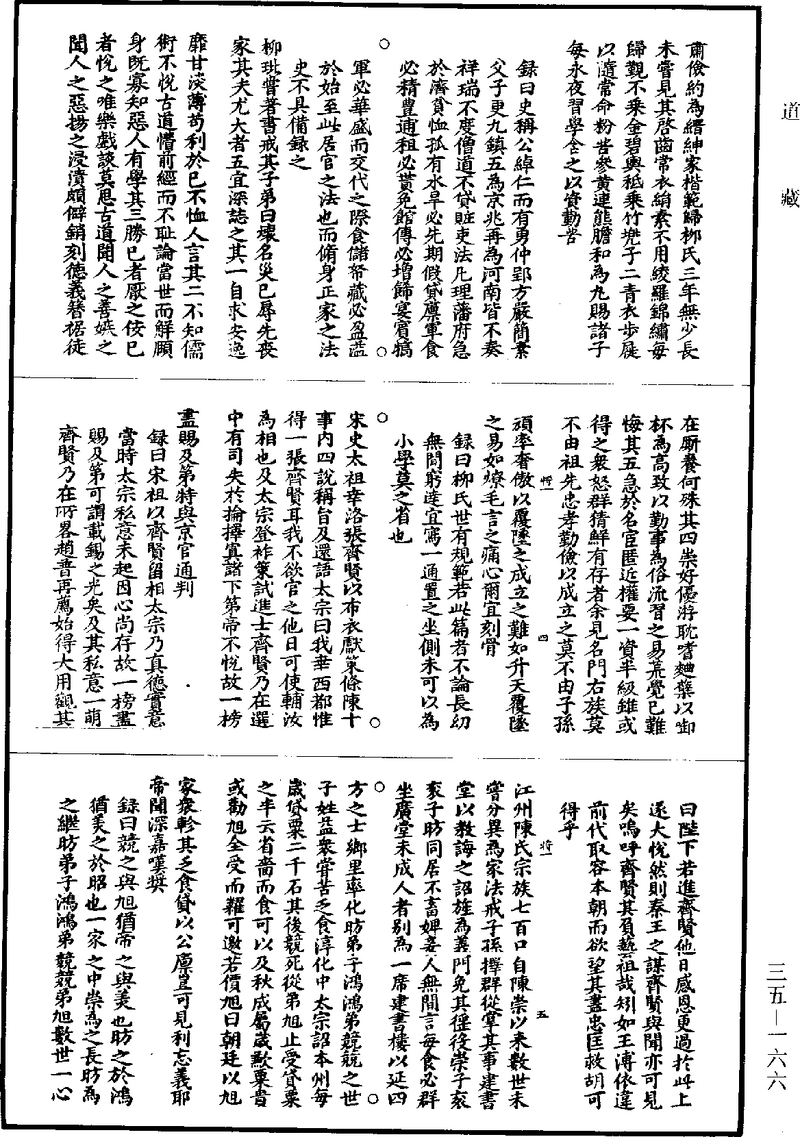 道藏
肅儉約為縉紳家楷範歸柳氏三年無少長
未嘗見其啓齒常衣絹素不用綾羅錦繡每
歸覲不乘金碧輿秪乘竹兠子二青衣步屣
以隨常命粉苦參黃連熊膽和為丸賜諸子
每永夜習學含之以資勤苦
錄曰史稱公綽仁而有勇仲郢方嚴簡素
父子更九鎮五為京兆再為河南皆不奏
祥瑞不度僧道不貸贓吏法凡理藩府急
於濟貧恤孤有水旱必先期假貸廩軍食
必精豐逋租必貰免館傳必增飾宴賓犒
軍必華盛而交代之際食儲帑藏必盈溢
於始至此居官之法也而脩身正家之法
史不具備錄之
柳玭嘗著書戒其子弟曰壞名災己辱先喪
家其失尤大者五宜深誌之其一自求安逸
靡甘淡薄苟利於己不恤人言其二不知儒
術不悅古道懵前經而不恥論當世而解頤
身既寡知惡人有學其三勝己者厭之佞己
者悅之唯樂戲談莫思古道聞人之善嫉之
聞人之惡揚之浸漬頗僻銷刻德義簪裾徒
在厮養何殊其四崇好優游耽嗜麯蘖以御
杯為高致以勤事為俗流習之易荒覺已難
悔其五急於名宦匿近權要一資半級雖或
得之衆怒群猜鮮有存者余見名門右族莫
不由祖先忠孝勤儉以成立之莫不由子孫
頑率奢傲以覆墜之成立之難如升天覆墜
之易如燎毛言之痛心爾宜刻骨
錄曰柳氏世有規範若此篇者不論長幼
無間窮達宜寫一通置之坐側未可以為
小學莫之省也
宋史太祖幸洛張齊賢以布衣獻策條陳十
事內四說稱旨及還語太宗曰我幸西都惟
得一張齊賢耳我不欲官之他日可使輔汝
為相也及太宗登祚策試進士齊賢乃在選
中有司失於掄擇寘諸下第帝不悅故一榜
盡賜及第特與京官通判
錄曰宋祖以齊賢留相太宗乃真德實意
當時太宗私意未起因心尚存故一榜盡
賜及第可謂載錫之光矣及其私意一萌
齊賢乃在所畧趙普再薦始得大用觀其
四
曰陛下若進齊賢他日感恩更過於此上
遂大悅然則秦王之謀齊賢與聞亦可見
矣嗚呼齊賢其負藝祖哉矧如王溥依違
前代取容本朝而欲望其盡忠匡救胡可
得乎
江州陳氏宗族七百口自陳崇以來數世未
嘗分異為家法戒子孫擇群從掌其事建書
堂以教誨之詔旌為義門免其徭役崇子袞
袞子昉同居不畜婢妾人無間言每食必群
坐廣堂未成人者別為一席建書樓以延四
方之士鄉里率化昉弟子鴻鴻弟競競之世
子姓益衆嘗苦乏食淳化中太宗詔本州每
歲貸粟二千石其後競死從弟旭止受貸粟
之半云省嗇而食可以及秋成屬歲歉粟貴
或勸旭全受而糶可邀若價旭曰朝廷以旭
家衆軫其乏食貸以公廩豈可見利忘義耶
帝聞深嘉嘆奬
錄曰競之與旭猶帝之與美也昉之於鴻
猶美之於昭也一家之中崇為之長昉為
之繼昉弟子鴻鴻弟競競弟旭數世一心
五
三五—一六六